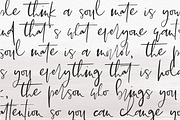 ple think a soul mate is you
nd that's what everyone want
soul mate is a mirror, the p
s you everything that is hold
, the person who brings you
attention so you can change yo